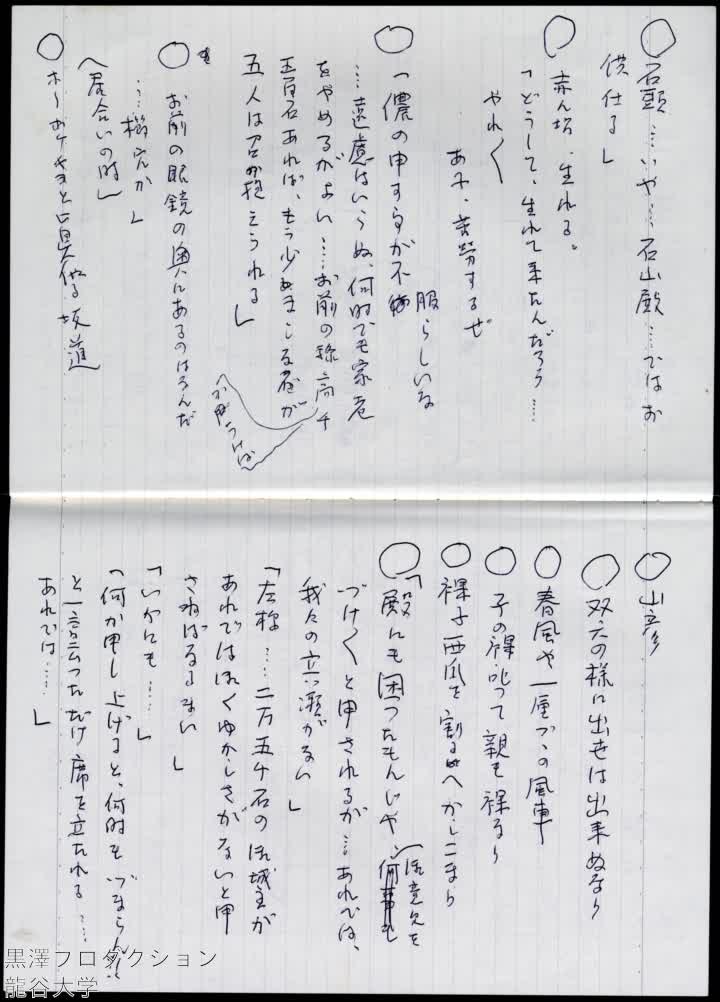 ○石頭……いや……石山殿……ではお
供仕る」
○赤ん坊、生れる。
「どうして、生れて来たんだろう……
やれ〱
あゝ、苦労するぜ
○「儂の申す事が不服らしいな
……遠慮はいらぬ、何時でも家老
をやめるがよい……お前の祿高千
五百石あれば、もう少しましな者が
五人は召し抱えられる」
○お前の眼鏡の奥にあるのはなんだ
……か」
(居合いの時)
○ホーホケキョと真似る坂道
○山彦
○双六の様に出世は出来ぬなり
○春風や一厘づゝの風車
○子の裸叱って親も裸なり
○裸子西瓜を割るへかしこまり
○「殿にも困ったもんじゃ、御意見を
づけ〱と申されるが……あれでは、
我々の立つ瀬がない」
「左様……二万五千石の御城主が
あれではおくゆかしさがないと申
さねばなるまい」
「いかにも……」
「何か申し上げると、何時も「づまらん!!
と一言云っただけ席を立たれる……
あれでは……」
黒澤プロダクション
龍谷大学